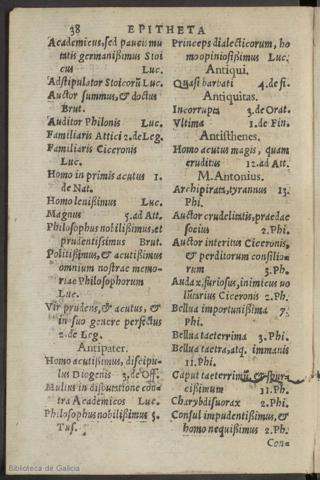 38 EPITHETA
Academicus, sed paucu mu
tatis germanißimus Stoi
cus Luc.
Adstipulator Stoicorũ Luc.
Auctor summus, & doctus
Brut.
Auditor Philonis Luc.
Familiaris Attici 2. de Leg.
Familiaris Ciceronis
Luc.
Homo in primis acutus 1.
de Nat.
Homo lenißimus Luc.
Magnus 5. ad Att.
Philosophus nobilißimus, et
prudentißimus Brut.
Politißimus, & acutißimus
omnium nostrae memo-
riae Philosophorum
Luc.
Vir prudens, & acutus, &
in suo genere perfectus
2. de Leg.
Antipater.
Homo acutißimus, discipu-
lus Diogenis 3. de Off.
Multus in disputatione con-
tra Academicos Luc.
Philosophus nobilißimus 5.
Tus.
Princeps dialecticorum, ho
mo opiniosißimus Luc.
Antiqui.
Quasi barbati 4. de fi.
Antiquitas.
Incorrupta 3. de Orat.
Vltima 1. de Fin.
Antisthenes.
Homo acutus magis, quam
eruditus 12. ad Att.
M. Antonius.
Archipirata, tyrannus 13.
Phi.
Auctor crudelitatis, praedae
socius 2. Phi.
Auctor interitus Ciceronis,
& perditorum consilio-
rum 3. Ph.
Audax, furiosus, inimicus uo
luntarius Ciceronis 2. Ph.
Bellua importunißima 7.
Phi.
Bellua taeterrima 3. Phi.
Bellua taetra, atq. immanis
11. Phi.
Caput taeterrimũ, & spur-
cißimum 11. Ph.
Charybdis uorax 2. Phi.
Consul impudentißimus, &
homo nequißimus 2. Ph.
Con=
Biblioteca de Galicia